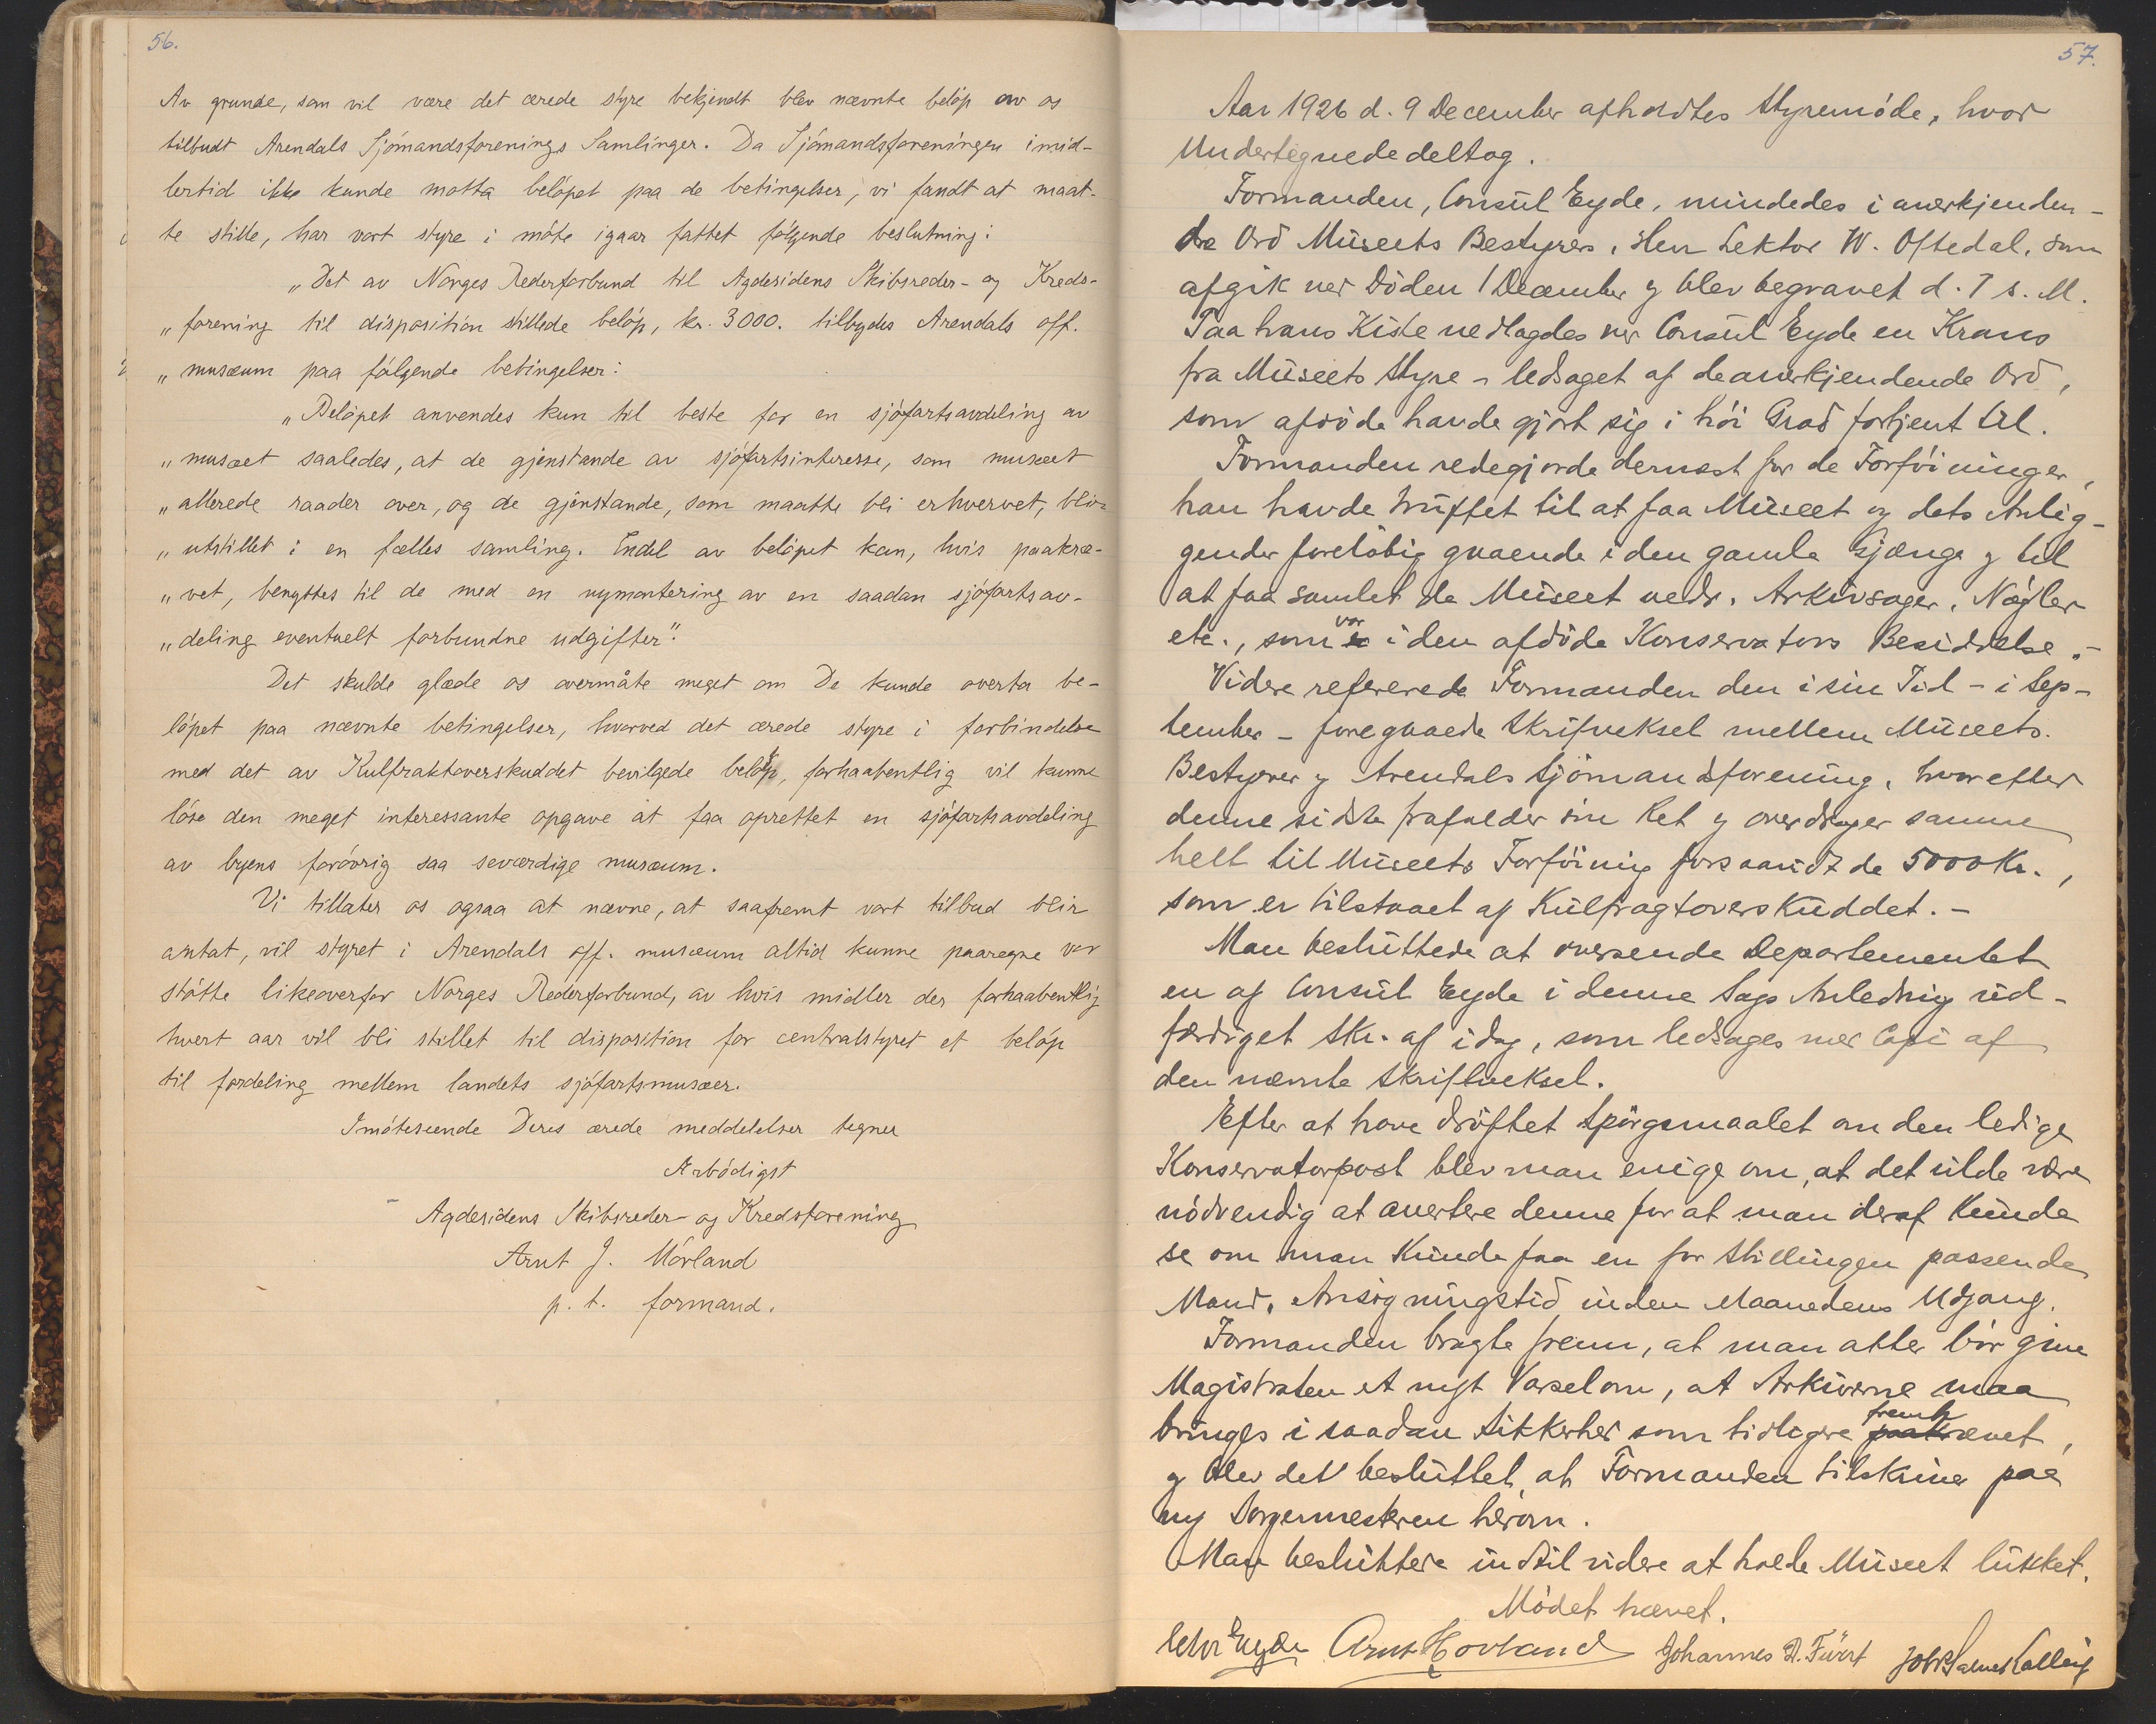 56.
Av grunde, som vil være det ærede styre bekjendt blev nævnte beløp av os
tilbudt Arendals Sjømandsforenings Samlinger. Da Sjømandsforeningen imid-
lertid ikke kunde motta beløpet paa de betingelser, vi fandt at maat-
te stille, har vort styre i møte igaar fattet følgende beslutning:
„Det av Norges Rederforbund til Agdesidens Skibsreder- og Kreds-
„forening til disposition stillede beløp, kr. 3000. tilbydes Arendals off.
„musæum paa følgende betingelser:
„Beløpet anvendes kun til beste for en sjøfartsavdeling av
„musæet saaledes, at de gjenstande av sjøfartsinteresse, som musæet
„allerede raader over, og de gjenstande, som maatte bli erhvervet, blir
„utstillet i en fælles samling. Endel av beløpet kan, hvis paakræ-
„vet, benyttes til de med en nymontering av en saadan sjøfartsav-
„deling eventuelt forbundne udgifter".
Det skulde glæde os overmåte meget om De kunde overta be-
løpet paa nævnte betingelser, hvorved det ærede styre i forbindelse
med det av Kulfraktoverskuddet bevilgede beløp, forhaabentlig vil kunne
løse den meget interessante opgave at faa oprettet en sjøfartsavdeling
av byens forøvrig saa seværdige musæum.
Vi tillater os ogsaa at nævne, at saafremt vort tilbud blir
antat, vil styret i Arendals off. musæum altid kunne paaregne vor
støtte likeoverfor Norges Rederforbund, av hvis midler der forhaabentlig
hvert aar vil bli stillet til disposition for centralstyret et beløp
til fordeling mellem landets sjøfartsmusæer.
Imøteseende Deres ærede meddelelser tegner
Ærbødigst
Agdesidens Skibsreder- og Kredsforening
Arnt J. Mørland
p. t. formand.
57.
Aar 1926 d. 9 December afholdtes Styremøde, hvor
Undertegnede deltog.
Formanden, Consul Eyde, mindedes i anerkjenden-
de Ord Museets Bestyrer, Herr Lektor W. Oftedal, som
afgik ved Döden 1 December og blev begravet d. 7 s. M.
Paa hans Kiste nedlagdes ved Consul Eyde en Krans
fra Museets Styre – ledsaget af de anerkjendende Ord,
som afdöde havde gjort sig i höi Grad fortjent til.
Formanden redegjorde dernæst for de Forföininger,
han havde truffet til at faa Museet og dets Anlig-
gender forelöbig gaaende i den gamle Gjænge og til
at faa samlet de Museet vedr. Arkivsager, Nøgler
etc., som var i den afdöde Konservators Besiddelse.–
Videre refererede Formanden den i sin Tid – i Sep-
tember – foregaaede Skriftveksel mellem Museets
Bestyrer og Arendals Sjömandsforening, hvorefter
denne sidste frafalder sin Ret og overdrager samme
helt til Museets Forföining forsaavidt de 5000 Kr.,
som er tilstaaet af Kulfragtoverskuddet. –
Man besluttede at oversende Departementet
en af Consul Eyde i denne Sags Anledning ud-
færdiget Skr. af idag, som ledsages med Copi af
den nævnte Skriftveksel.
Efter at have dröftet Spörgsmaalet om den ledige
Konservatorpost blev man enige om, at det vilde være
nödvendig at avertere denne for at man deraf kunde
se om man kunde faa en for Stillingen passende
Mand. Ansögningstid inden Maanedens Udgang.
Formanden bragte frem, at man atter bör give
Magistraten et nyt Varsel om, at Arkiverne maa
bringes i saadan Sikkerhed som tidligere fremhævet,
og blev det besluttet, at Formanden tilskriver paa
ny Borgermesteren herom.
Man besluttede indtil videre at holde Museet lukket.
Mödet hævet.
Eyde Arnt Mørland Johannes A. Fürst